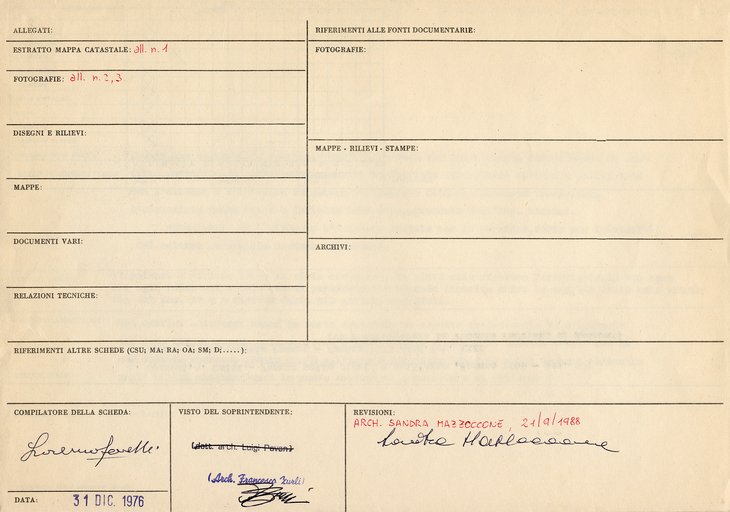 ALLEGATI:
ESTRATTO MAPPA CATASTALE: all. n. 1
FOTOGRAFIE: all. n. 2, 3
DISEGNI E RILIEVI:
MAPPE:
DOCUMENTI VARI:
RELAZIONI TECNICHE:
RIFERIMENTI ALLE FONTI DOCUMENTARIE:
FOTOGRAFIE:
MAPPE - RILIEVI - STAMPE:
ARCHIVI:
RIFERIMENTI ALTRE SCHEDE (CSU; MA; RA; OA; SM; D;.....):
COMPILATORE DELLA SCHEDA:
DATA: 31 DIC. 1976
VISTO DEL SOPRINTENDENTE:
(dott. arch. Luigi Pavan)
(Arch. Francesco
REVISIONI:
ARCH. SANDRA MAZZOCCONE, 21/9/1988
Sandra Mazzoccone